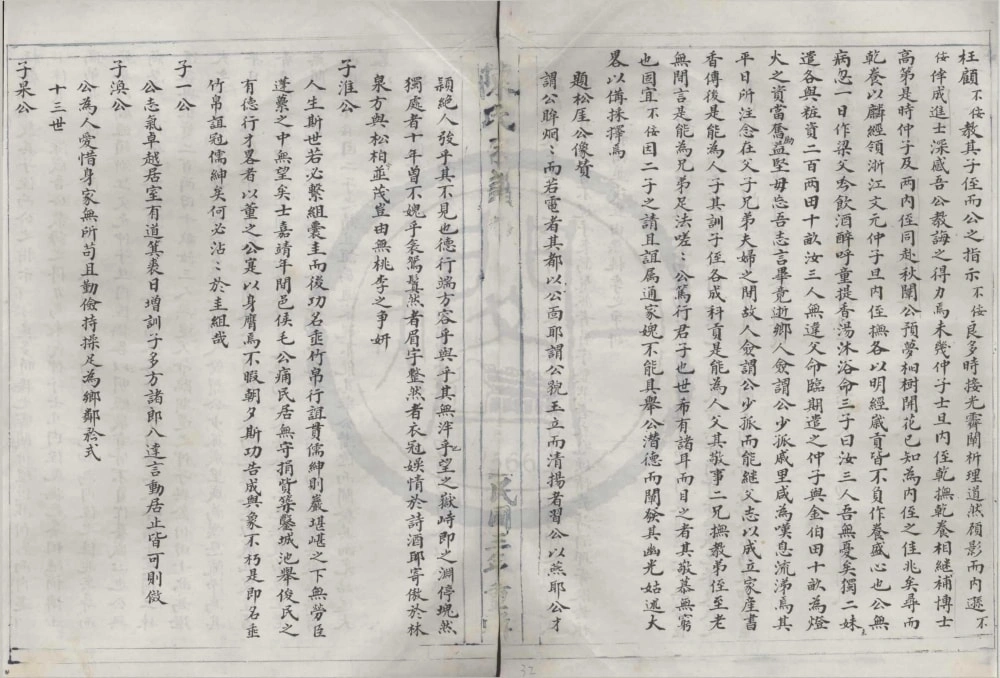 枉顧不佞教其子侄而公之指示不佞良多時接光霽闡析理道然顧影而內遜不
佞伴成進士深感吾公教誨之得力焉未幾仲子士旦內侄乾撫乾養相繼補博士
高弟是時仲子及兩內侄同赴秋闈公預夢枏樹開花已知為內侄之佳兆矣尋而
乾養以麟經領浙江文元仲子旦內侄撫各以明經歲貢皆不負作養盛心也公無
病忽一日作梁父吟飲酒醉呼童提香湯沐浴命三子曰汝三人吾無憂矣獨二妹
遣各與粧資二百兩田十畝汝三人無違父命臨期遣之仲子與金伯田十畝為燈
火之資當奮益堅毋忘吾志言畢竟逝鄉人僉謂公少孤戚里咸為嘆息流涕焉其
平日所注念在父子兄弟夫婦之間故人僉謂公少孤而能繼父志以成立家產書
香傳後是能為人子其訓子侄各成科貢是能為人父其敬事二兄撫教弟侄至老
無間言是能為兄弟足法嗟嗟公篤行君子也世希有諸耳而目之者其敬慕無窮
也因宜不佞因二子之請且誼屬通家媿不能具舉公潛德而闡發其幽光姑述大
畧以備採擇焉
題松厓公像贊
謂公眸炯炯而若電者其都以公面耶謂公貌玉立而清揚者習公以燕耶公才
穎絕人發乎其不見也德行端方容乎與乎其無泮乎望之嶽峙即之淵停塊然
獨處者十年曾不媿乎衾鴛鬒然者眉宇整然者衣冠娛情於詩酒耶寄傲於林
泉方與松柏並茂豈由無桃李之爭妍
子淮公
人生斯世若必繫組囊圭而後功名垂竹帛行誼貫儒紳則巖堪嵁之下無勞臣
蓬蓽之中無望矣士嘉靖年間邑侯毛公痛民居無守捐貲築鑿城池舉俊民之
有德行才畧者以董之公寔以身膺焉不暇朝夕斯功告成與象不朽是即名垂
竹帛誼冠儒紳矣何必沾沾於圭組哉
子一公
公志氣卓越居室有道箕裘日增訓子多方諸郎八達言動居止皆可則倣
子渙公
公為人愛惜身家無所苟且勤儉持操足為鄉鄰矜式
十三世
子杲公
32